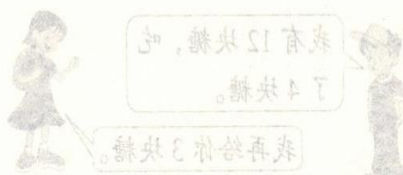 我有 12 块糖，吃
了 4 块糖。
我再给你 3 块糖。